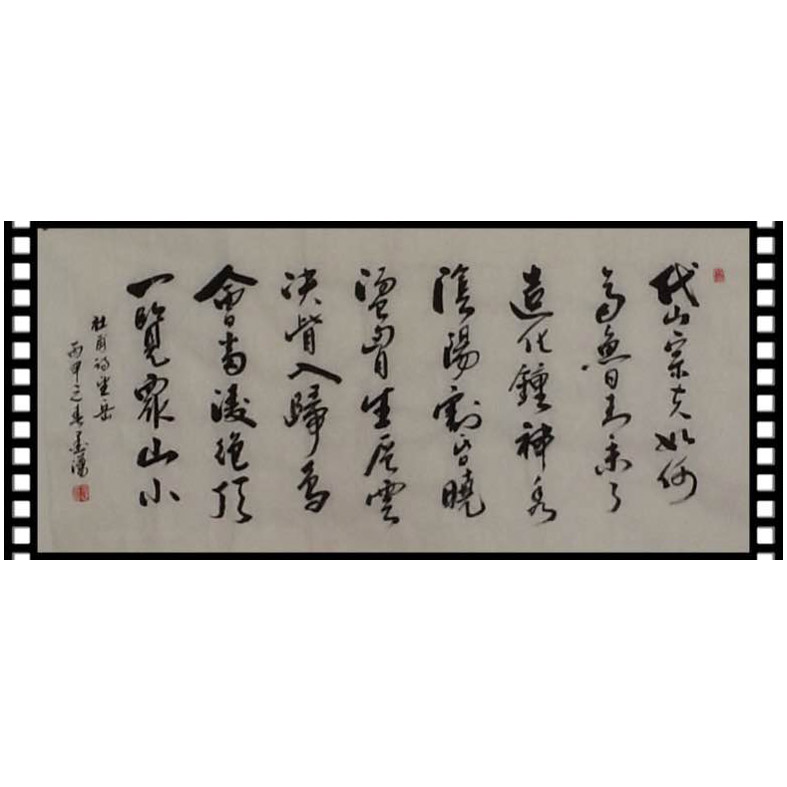 岱宗夫如何
齊魯青未了
造化鍾神秀
陰陽割昏曉
盪胷生層雲
決眥入歸鳥
會當凌絕頂
一覽眾山小
杜甫詩望岳
丙申之春